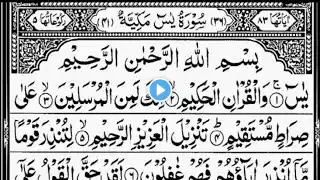 اٰيَاتُهَا ۸۳ (۳۶) سُوْرَةُ يٰسٓ مَكِّيَّةٌ (۴۱) رُكُوْعَاتُهَا ۵
بِسْمِ اللّٰهِ الرَّحْمٰنِ الرَّحِيْمِ
يٰسٓ ۱ وَالْقُرْاٰنِ الْحَكِيْمِ ۲ اِنَّكَ لَمِنَ الْمُرْسَلِيْنَ ۳ عَلٰى
صِرَاطٍ مُّسْتَقِيْمٍ ۴ تَنْزِيْلَ الْعَزِيْزِ الرَّحِيْمِ ۵ لِتُنْذِرَ قَوْمًا
مَّآ اُنْذِرَ اٰبَآؤُهُمْ فَهُمْ غٰفِلُوْنَ ۶ لَقَدْ حَقَّ الْقَوْلُ عَلٰٓى